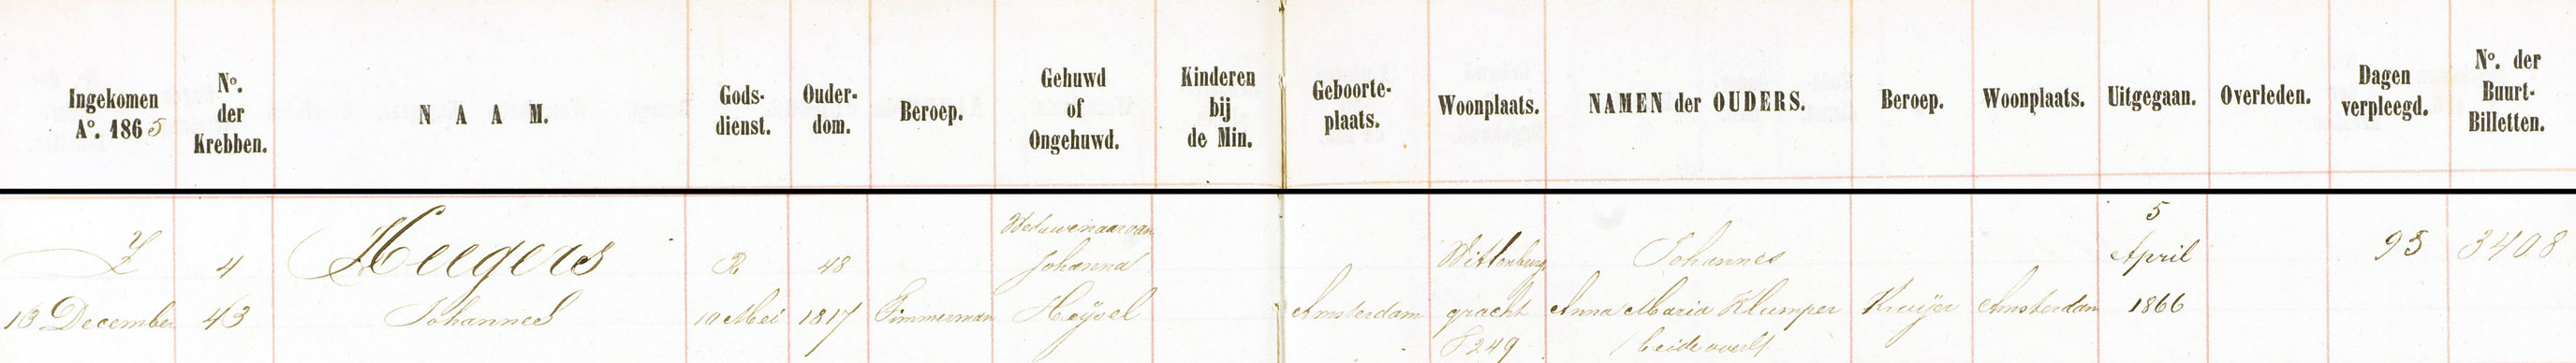 Ingekomen
A°. 1865
N°.
der
Krebben.
NAAM.
Gods-
dienst.
Ouder-
dom.
Beroep.
Gehuwd
of
Ongehuwd.
Kinderen
bij
de Min.
Geboorte-
plaats.
Woonplaats.
NAMEN der OUDERS.
Beroep.
Woonplaats.
Uitgegaan.
Overleden.
Dagen
verpleegd.
N°. der
Buurt-
Billetten.
Z
13 December
4
43
Heegers
Johannes
R
10 Mei
48
1817
Timmerman
Weduwenaar van
Johanna
Heijsel
Amsterdam
Wittenburg
gracht
249
Johannes
Anna Maria Klumper
beide overl
Kruijer
Amsterdam
5
April
1866
95
3408